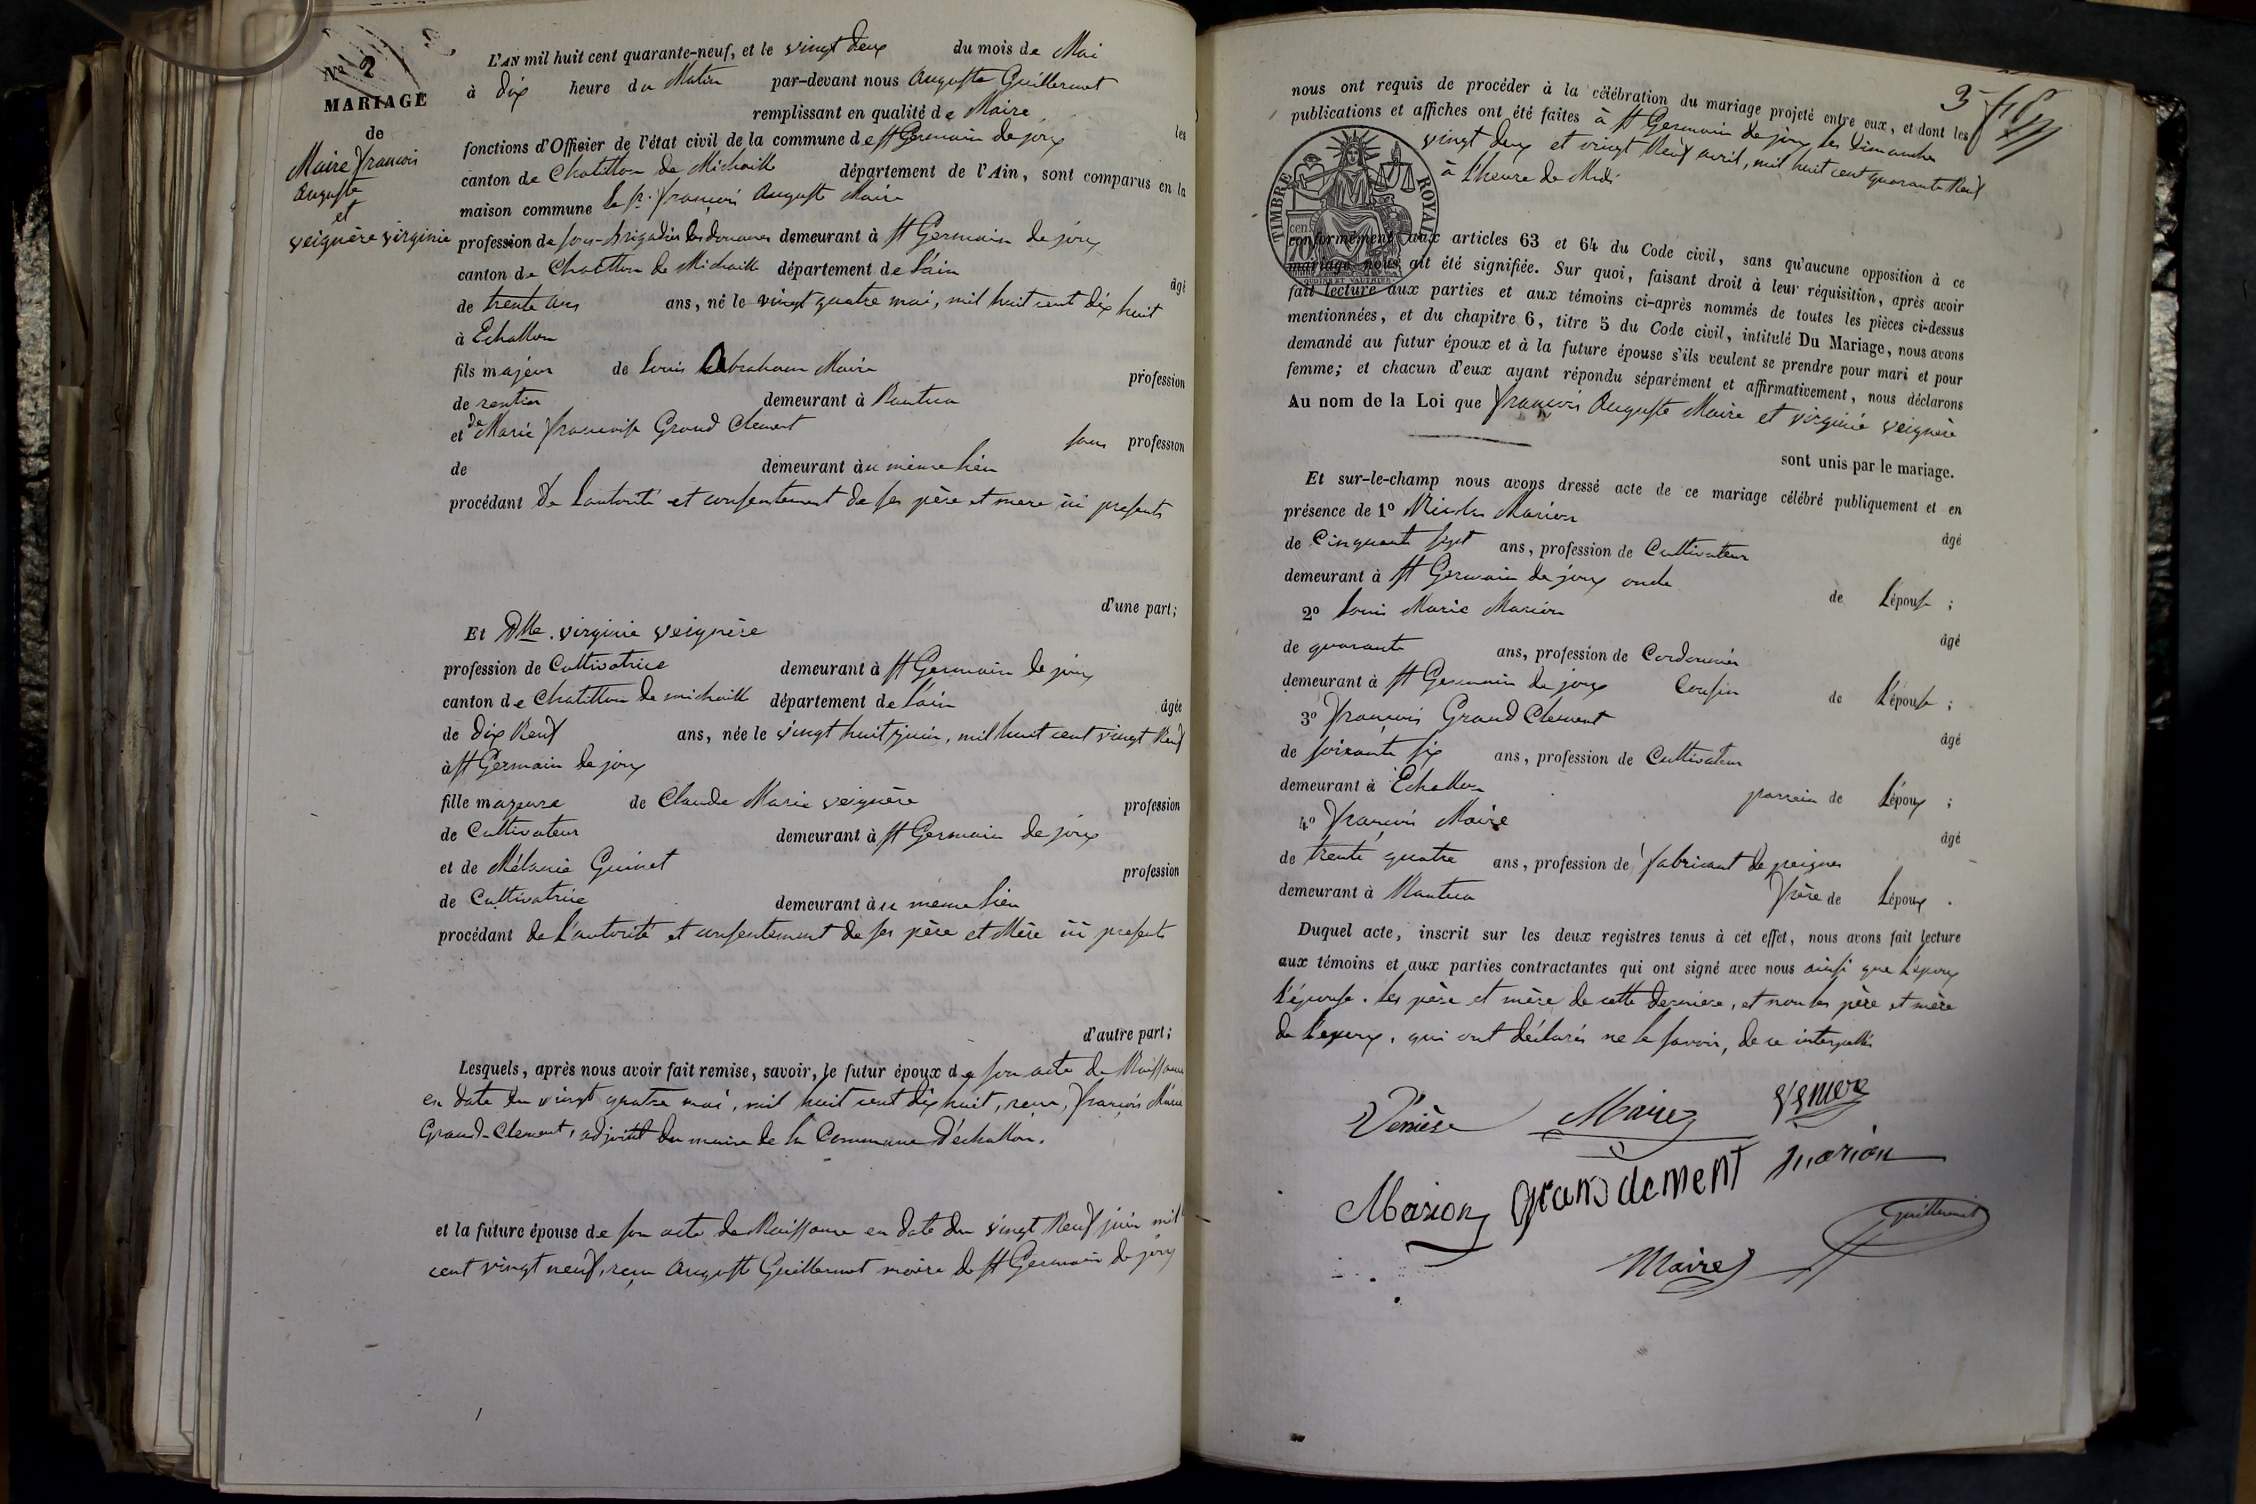 No 2
MARIAGE
de
Maire françois
Auguste
et
Veignère Virginie
L'AN mil huit cent quarante-neuf, et le vingt deux du mois de Mai
à dix heure du Matin par-devant nous Auguste Guillermot
remplissant en qualité de Maire les
fonctions d'Officier de l'état civil de la commune de St Germain de joux
canton de Chatillon de Michaille département de l'Ain, sont comparus en la
maison commune le sr. françois Auguste Maire
profession de sous-brigadier des douanes demeurant à St Germain de joux
canton de Chatillon de Michaille département de l'ain âgé
de trente ans ans, né le vingt quatre mai, mil huit cent dix huit
à Echallon
fils majeur de Louis Abraham Maire profession
de rentier demeurant à Nantua
et de Marie françoise Grand Clement sans profession
de demeurant au même lieu
procédant de l'autorité et consentement de ses père et mere ici presents
d'une part;
Et Dlle. Virginie Veignère
profession de Cultivatrice demeurant à St Germain de joux
canton de Chatillon de michaille département de l'ain âgée
de dix Neuf ans, née le vingt huit juin, mil huit cent vingt Neuf
à St Germain de joux
fille mageure de Claude Marie Veignère profession
de Cultivateur demeurant à St Germain de joux
et de Mélanie Guinet profession
de Cultivatrice demeurant au même lieu
procédant de l'autorité et consentement de ses père et Mère ici presents
d'autre part;
Lesquels, après nous avoir fait remise, savoir, le futur époux de son acte de Naissance
en date du vingt quatre mai, mil huit cent dix huit, recu, françois Marie
Grand-Clement, adjoint du maire de la Commune d'échallon.
et la future épouse de son acte de Naissance en date du vingt Neuf juin mil
cent vingt neuf, reçu Auguste Guillermot maire de St Germain de joux
3
nous ont requis de procéder à la célébration du mariage projeté entre eux, et dont les
publications et affiches ont été faites à St Germain de joux les dimanches
vingt deux et vingt Neuf avril, mil huit cent quarante Neuf
à l'heure de Midi
TIMBRE ROYAL
conformément aux articles 63 et 64 du Code civil, sans qu'aucune opposition à ce
mariage nous ait été signifiée. Sur quoi, faisant droit à leur réquisition, après avoir
fait lecture aux parties et aux témoins ci-après nommés de toutes les pièces ci-dessus
mentionnées, et du chapitre 6, titre 5 du Code civil, intitulé Du Mariage, nous avons
demandé au futur époux et à la future épouse s'ils veulent se prendre pour mari et pour
femme; et chacun d'eux ayant répondu séparément et affirmativement, nous déclarons
Au nom de la Loi que françois Auguste Maire et virginie Veignère
sont unis par le mariage.
Et sur-le-champ nous avons dressé acte de ce mariage célébré publiquement et en
présence de 1o Nicolas Marion âgé
de Cinquante sept ans, profession de Cultivateur
demeurant à St Germain de joux oncle de L'épouse ;
2o Louis Marie Marion âgé
de quarante ans, profession de Cordonnier
demeurant à St Germain de joux Cousin de L'épouse ;
3o françois Grand Clement âgé
de soixante six ans, profession de Cultivateur
demeurant à Echallon parrain de L'époux ;
4o françois Maire âgé
de trente quatre ans, profession de fabricant de peignes
demeurant à Nantua frère de L'époux .
Duquel acte, inscrit sur les deux registres tenus à cet effet, nous avons fait lecture
aux témoins et aux parties contractantes qui ont signé avec nous ainsi que L'époux
L'épouse. les père et mère de cette derniere, et non les père et mère
de L'epoux, qui ont déclarés ne le savoir, de ce interpellés
Venière Maire
Marion grandclement Marion
Guillermot
Maire